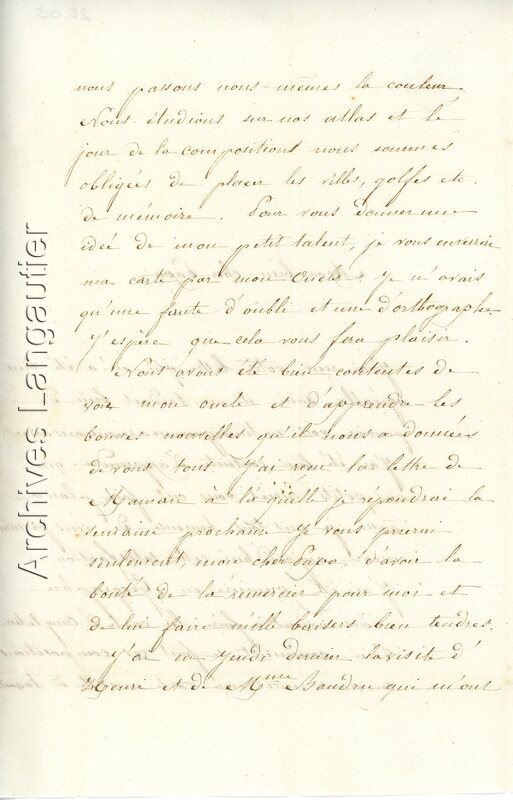 nous passons nous-mêmes la couleur.
Nous étudions sur nos atlas et le
jour de la compositions nous sommes
obligées de placer les villes, golfes etc.
de mémoire. Pour vous donner une
idée de mon petit talent, je vous enverrai
ma carte par mon Oncle. Je n'avais
qu'une faute d'oubli et une d'orthographe
J'espère que cela vous fera plaisir.
Nous avons été bien contentes de
voir mon oncle et d'apprendre les
bonnes nouvelles qu'il nous a données
de vous tous J'ai reçu la lettre de
Maman à la quelle je répondrai la
semaine prochaine Je vous prierai
seulement, mon cher Papa, d'avoir la
bonté de la remercier pour moi et
de lui faire mille baisers bien tendres.
J'ai eu Jeudi dernier la visite d'
Henri et de Mme Baudru qui m'ont
Archives Langautier